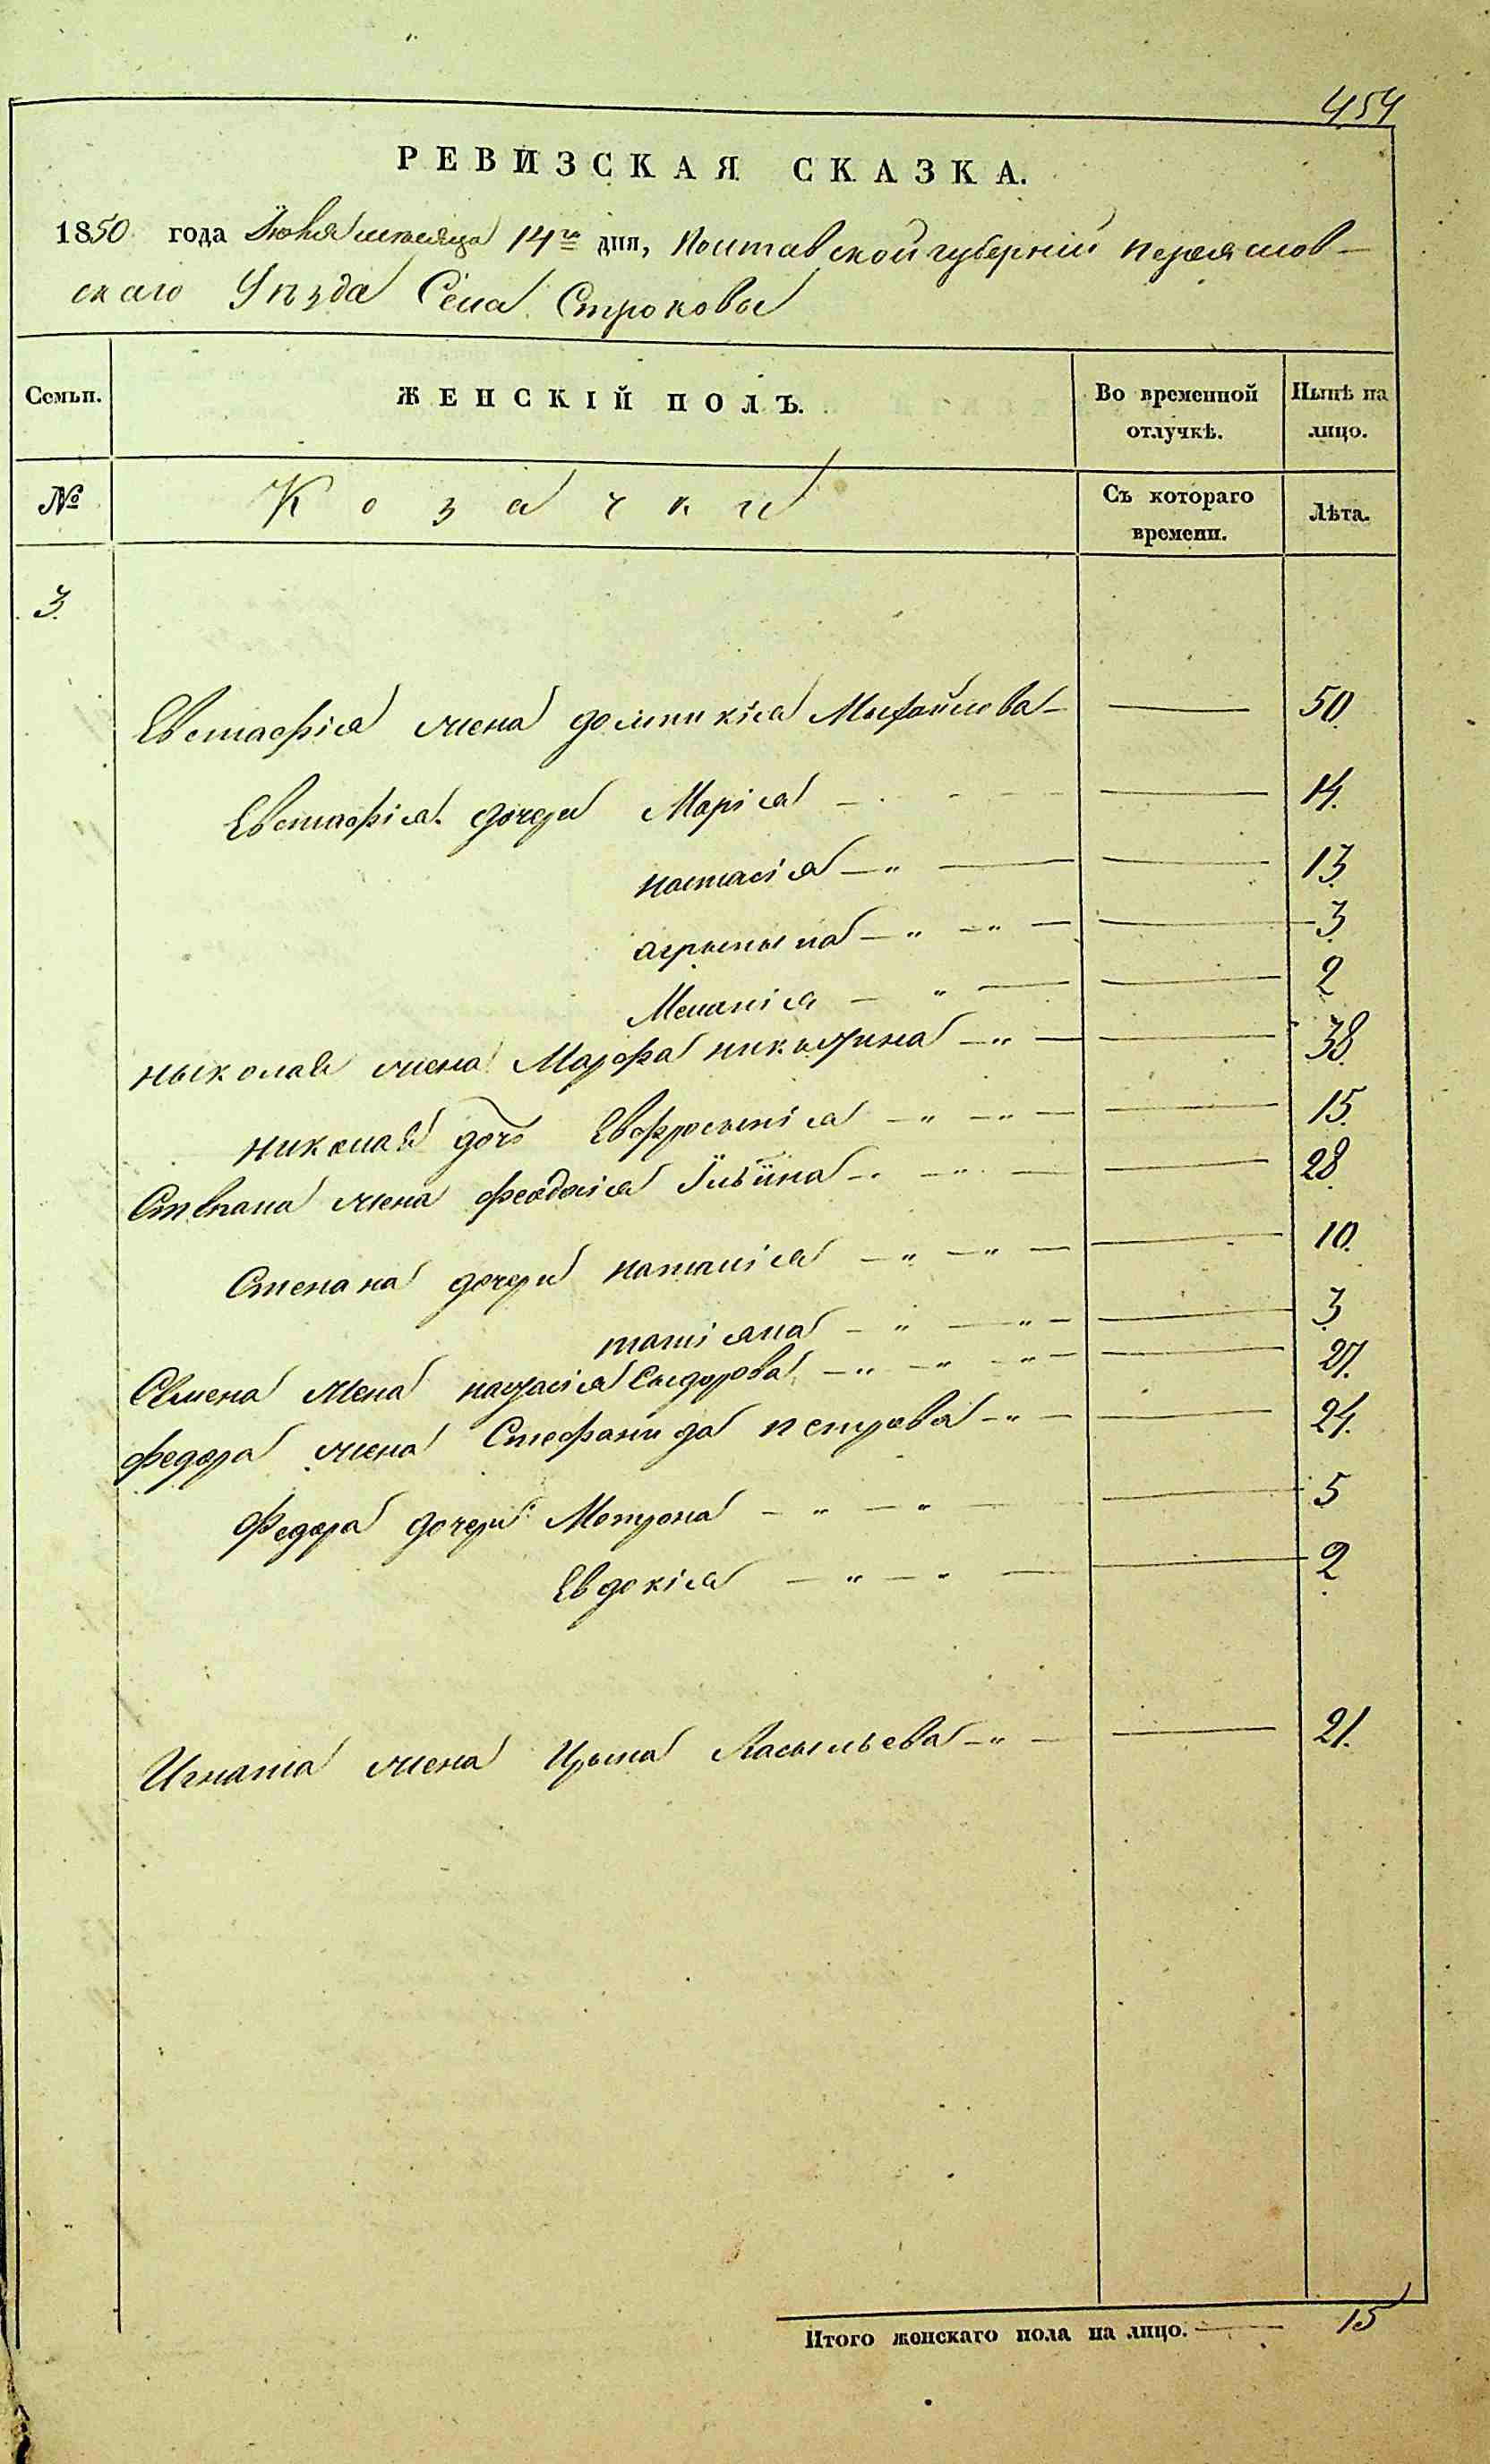 454
РЕВИЗСКАЯ СКАЗКА.
1850 года Июня месяца 14го дня, Полтавской губерніи переяслов-
скаго Уѣзда Села Строковы
Семьи. ЖЕНСКІЙ ПОЛЪ. Во временной отлучкѣ. Нынѣ на лицо.
№ Козачки Съ котораго времени. Лѣта.
3.
Евстафія жена домникія Михайлова — 50.
Евстафія дочери Марія — 14.
настасія — 13.
агрыпына — 3
Меланія — 2
ныколая жена Марфа никитина — 38.
николая дочь Евфросынія — 15.
Степана жена феодосія Ильина — 28.
Степана дочери наталія — 10.
татіяна — 3
Семена жена настасія Сыдорова — 27.
федора жена Стефанида петрова — 24.
Федора дочери Мотрона — 5
Евдокія — 2
Игната жена Ирына Васыльева — 21.
Итого женскаго пола на лицо. — 15